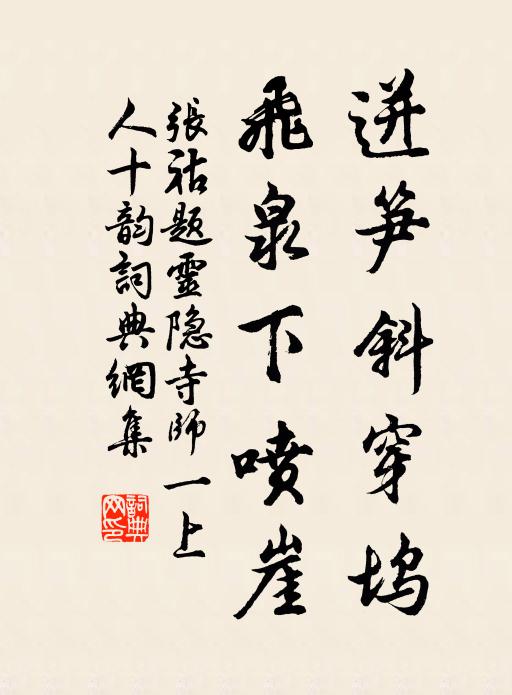 迸笋斜穿坞
飛泉下喷崖
張祜题靈隐寺師一上
人十韵詞典網集
詞典网印